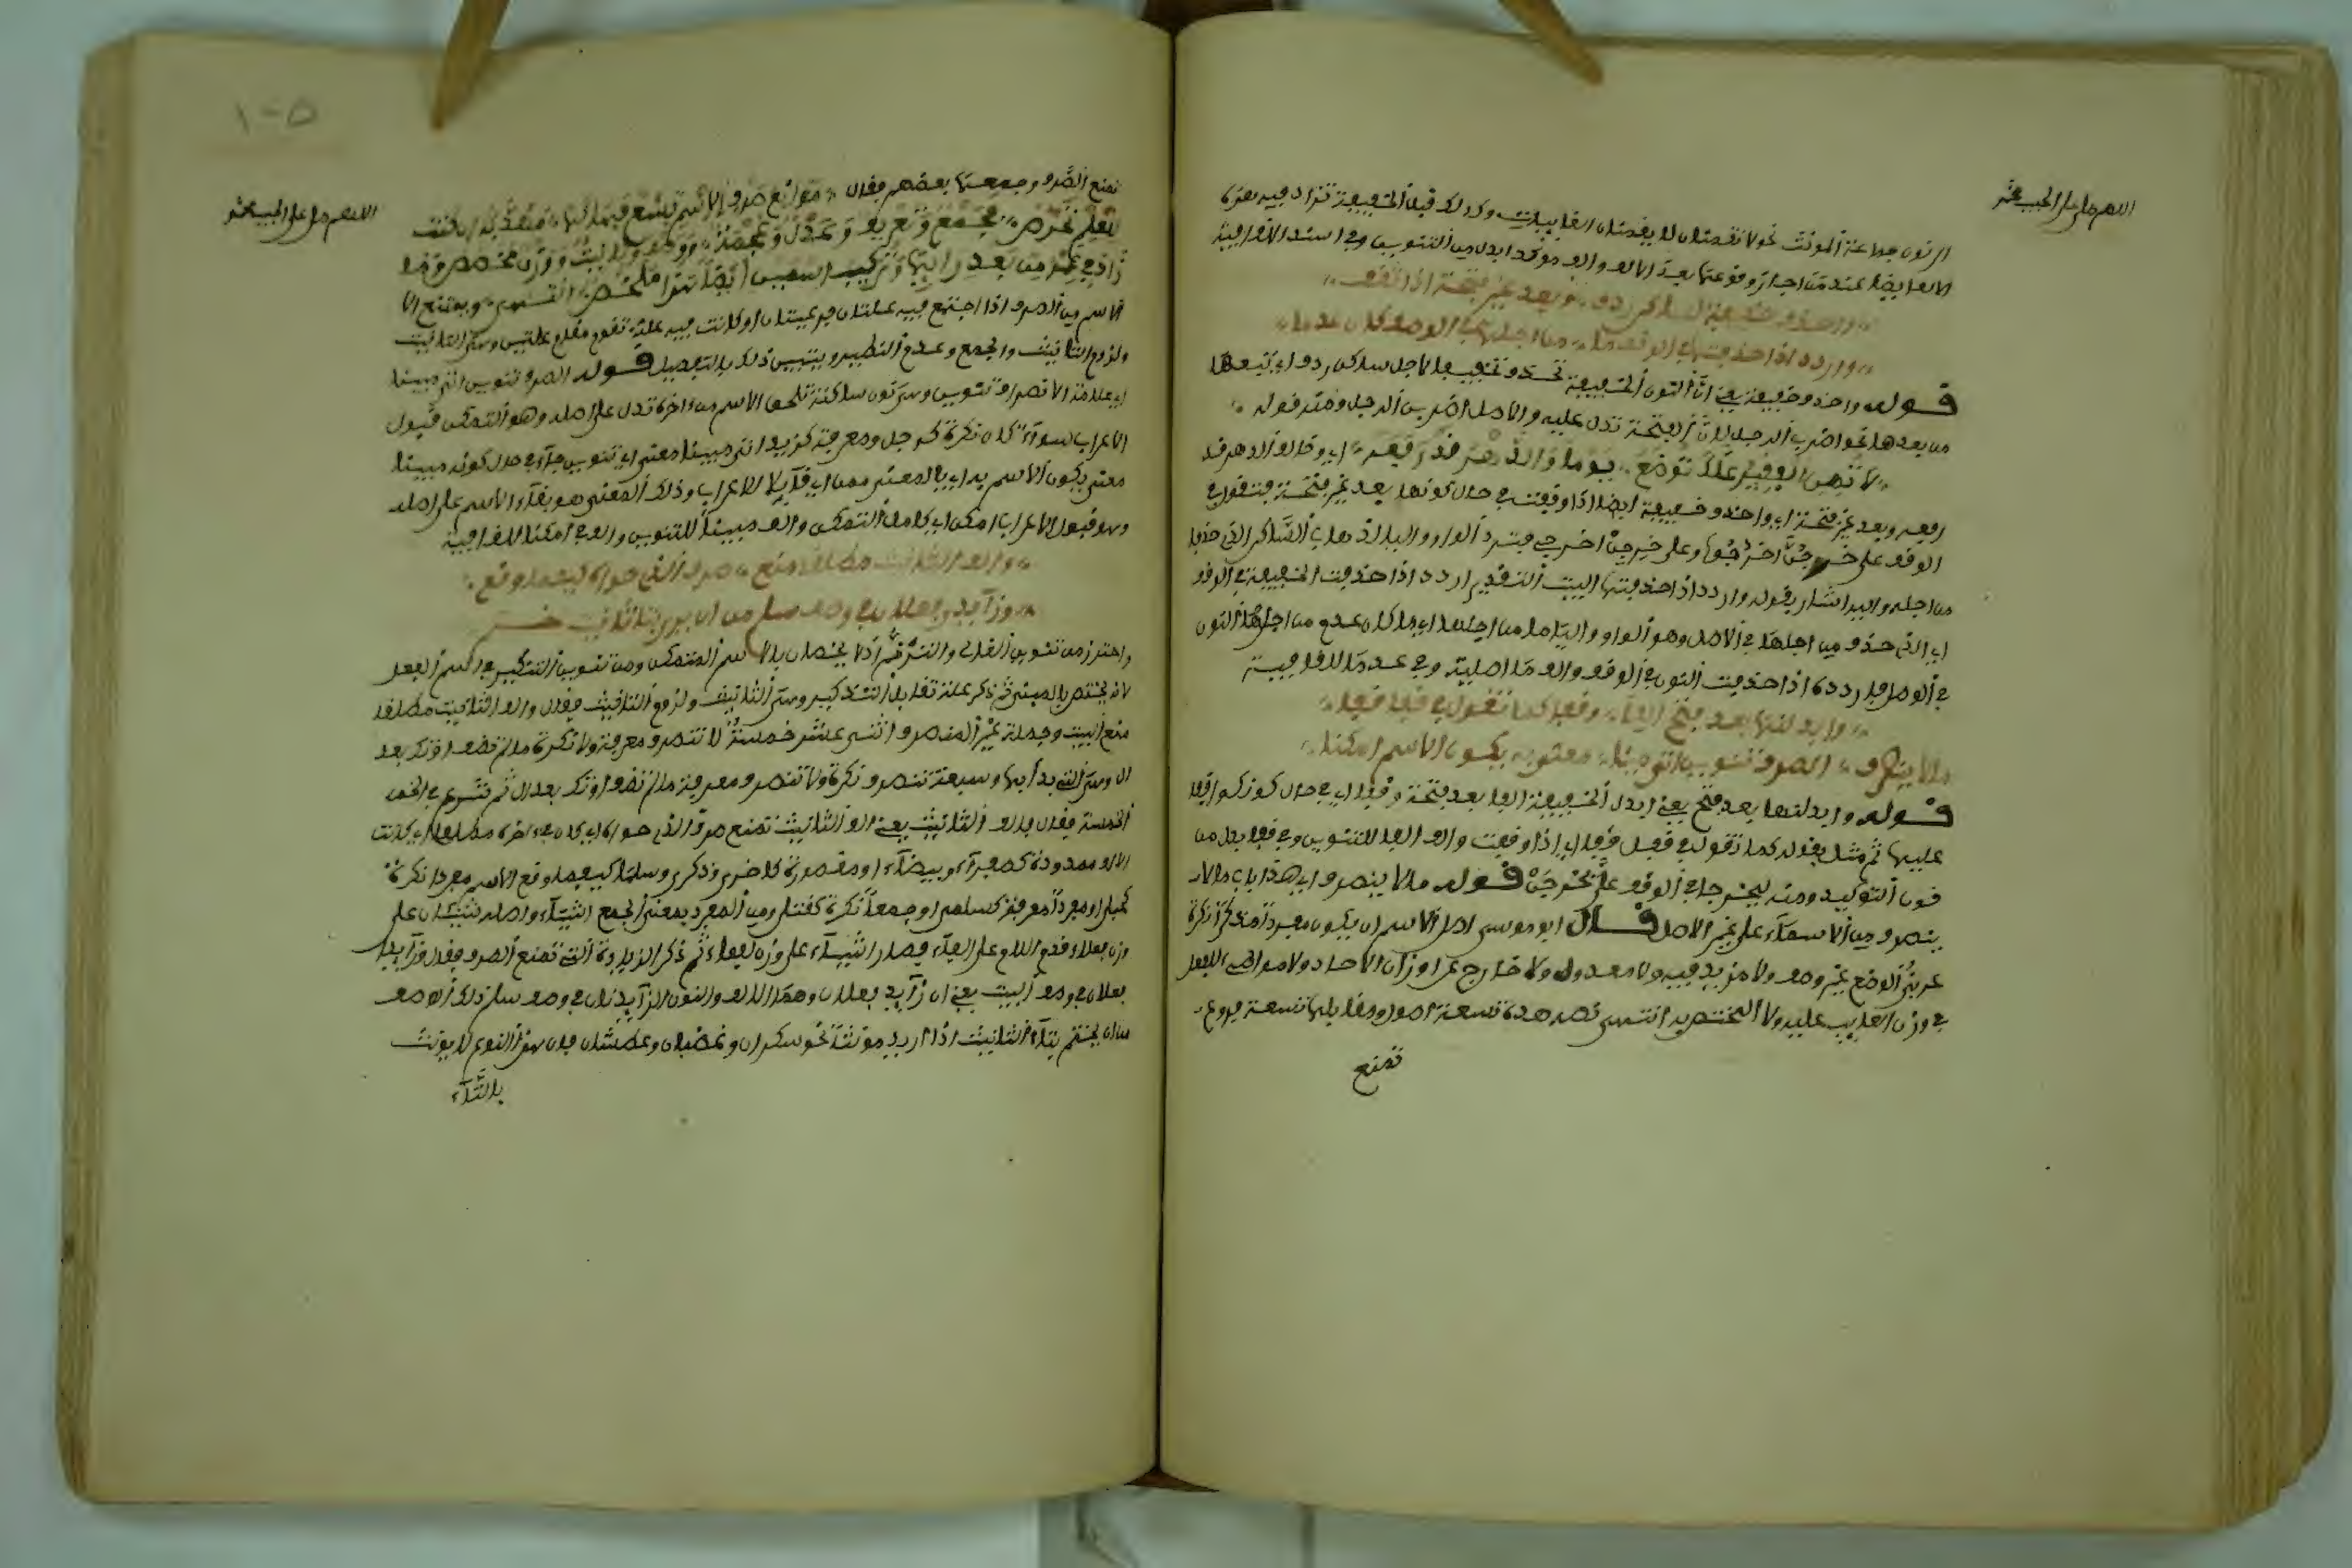 اللهم صل على الحبيب محمد
الى نون جماعة المؤنث نحو لا تقمنان لا يقمنان الغايبات وكذلك قبل الخفيفة تزاد فيه بعدها
الالف ايضا عند من اجاز وقوعها بعد الالف والف مؤكدا بدل من التنوين وفي اسند الالف قافية
واحذف خفيفة لساكن ردف، وبعد غير فتحة اذا تقف
واردد اذا حذفتها في الوقف ما، من اجلها في الوصل كان عدما
قوله واحذف خفيفة يعني ان النون الخفيفة تحذف تخفيفا لاجل ساكن ردف اي تبعها
من بعدها نحو اضرب الرجل لان الفتحة تدل عليه والاصل اضربن الرجل ومنه قوله
لا تهين الفقير علك ان تركع يوما والدهر قد رفعه اي وحالف الدهر قد
رفعه وبعد غير فتحة اي واحذف خفيفة ايضا اذا وقفت في حال كونها بعد غير فتحة فتقول في
الوقف على اخرجن اخرجوا وعلى اخرجن اخرجي فترد الواو والياء لذهاب الساكن الذي حذفا
من اجله واليه اشار بقوله واردد اذا حذفتها البيت التقدير اردد اذا حذفت الخفيفة في الوقف
اي الذي حذف من اجلها في الاصل وهو الواو والياء ما من اجلها اي ما كان عدم من اجل هذا النون
في الوصل فاردده اذا حذفت النون في الوقف والف ما اصلية وفي عدما للقافية
وابدلنها بعد فتح الفا، وقفا كما تقول في قفن قفا
ما لا ينصرف، الصرف تنوين اتى مبينا، معنى به يكون الاسم امكنا
قوله وابدلنها بعد فتح يعني ابدل الخفيفة الفا بعد فتحة وقفا اي في حال كونكم واقفا
عليها ثم مثل بقوله كما تقول في قفن قفا اي اذا وقفت والف الفا للتنوين وفي قفا بدل من
نون التوكيد ومنه ليخرجا في الوقف على يخرجن قوله ما لا ينصرف اي هذا باب ما لا
ينصرف من الاسماء على غير الاصل قال ابو موسى اصل الاسم ان يكون مفردا مذكرا نكرة
عربي الوضع غير وصف ولا مزيد فيه ولا معدول ولا خارج عن اوزان الاحاد ولا مواطئ للفعل
في وزن الغالب عليه ولا المختص به انتهى فهذه تسعة اصول ومقابلها تسعة فروع
تمنع
١٠٥
اللهم صل على الحبيب محمد
تمنع الصرف وجمعها بعضهم فقال، موانع صرف الاسم تسع فهاكها، منقحة ان كنت
للعلم تحرص، فجمع وتعريف وعدل وعجمة، ووصف وتانيث ووزن مخصص، وما
زاد في عمران بعد رايها وتركيب ايضا هو ملخص انتهى ويمتنع الا
لاسم من الصرف اذا اجتمع فيه علتان فرعيتان او كانت فيه علة تقوم مقام علتين وهي التانيث
ولزوم التانيث والجمع وعدم النظير ويتبين ذلك بالتفصيل قوله الصرف تنوين اتى مبينا
اي علامة الانصراف تنوين وهي نون ساكنة تلحق الاسم من اخره تدل على اصله وهو التمكن قبول
الاعراب سواء كان نكرة كرجل ومعرفة كزيد اتى مبينا معنى اي تنوين جاء في حال كونه مبينا
معنى يكون الاسم به اي بالمعنى امكن اي قابلا للاعراب وذلك المعنى هو بقاء الاسم على اصله
وهو قبول الاعراب امكن اي كامل التمكن والف مبينا للتنوين والف في امكنا للقافية
فالف التانيث مطلقا منع، صرف الذي حواه كيفما وقع
وزائدا فعلان في وصف سلم من ان يرى بتاء تانيث ختم
واحترز من تنوين الغالي والترنم اذ لا يختصان بالاسم المتمكن ومن تنوين التنكير في اسم الفعل
لانه يختص بالمبني ثم ذكر علة تقابل التذكير وهي التانيث ولزوم التانيث فقال والف التانيث مطلقا
منع البيت وجملة غير المنصرف اثنى عشر خمسة لا تنصرف معرفة ولا نكرة ما لم تضف او تك بعد
ال وهي التي بدا بها وسبعة تنصرف نكرة ولا تنصرف معرفة ما لم تضف او تك بعد ال ثم شرع في الخمسة
الخمسة فقال فالف التانيث يعني الف التانيث تمنع صرف الذي حواه اي كان في اخره مطلقا اي كانت
الالف ممدودة كصحراء وبيضاء او مقصورة كاخرى وذكرى وسلمى كيفما وقع الاسم مفردا نكرة
كحبلى او مفردا معرفة كسلمى او جمعا نكرة كقتلى ومن المفرد بمعنى الجمع اشياء واصله شيئان على
وزن فعلاء قدم اللام على الفاء فصار اشياء على وزن لفعاء ثم ذكر الزيادة التي تمنع الصرف فقال وزائدا
فعلان في وصف البيت يعني ان زائدي فعلان وهما الالف والنون الزائدتان في وصف سلم ذلك الوصف
من ان يختم بتاء التانيث اذا اريد مؤنثا نحو سكران وغضبان وعطشان فان هذا النوع لا يؤنث
بالتاء